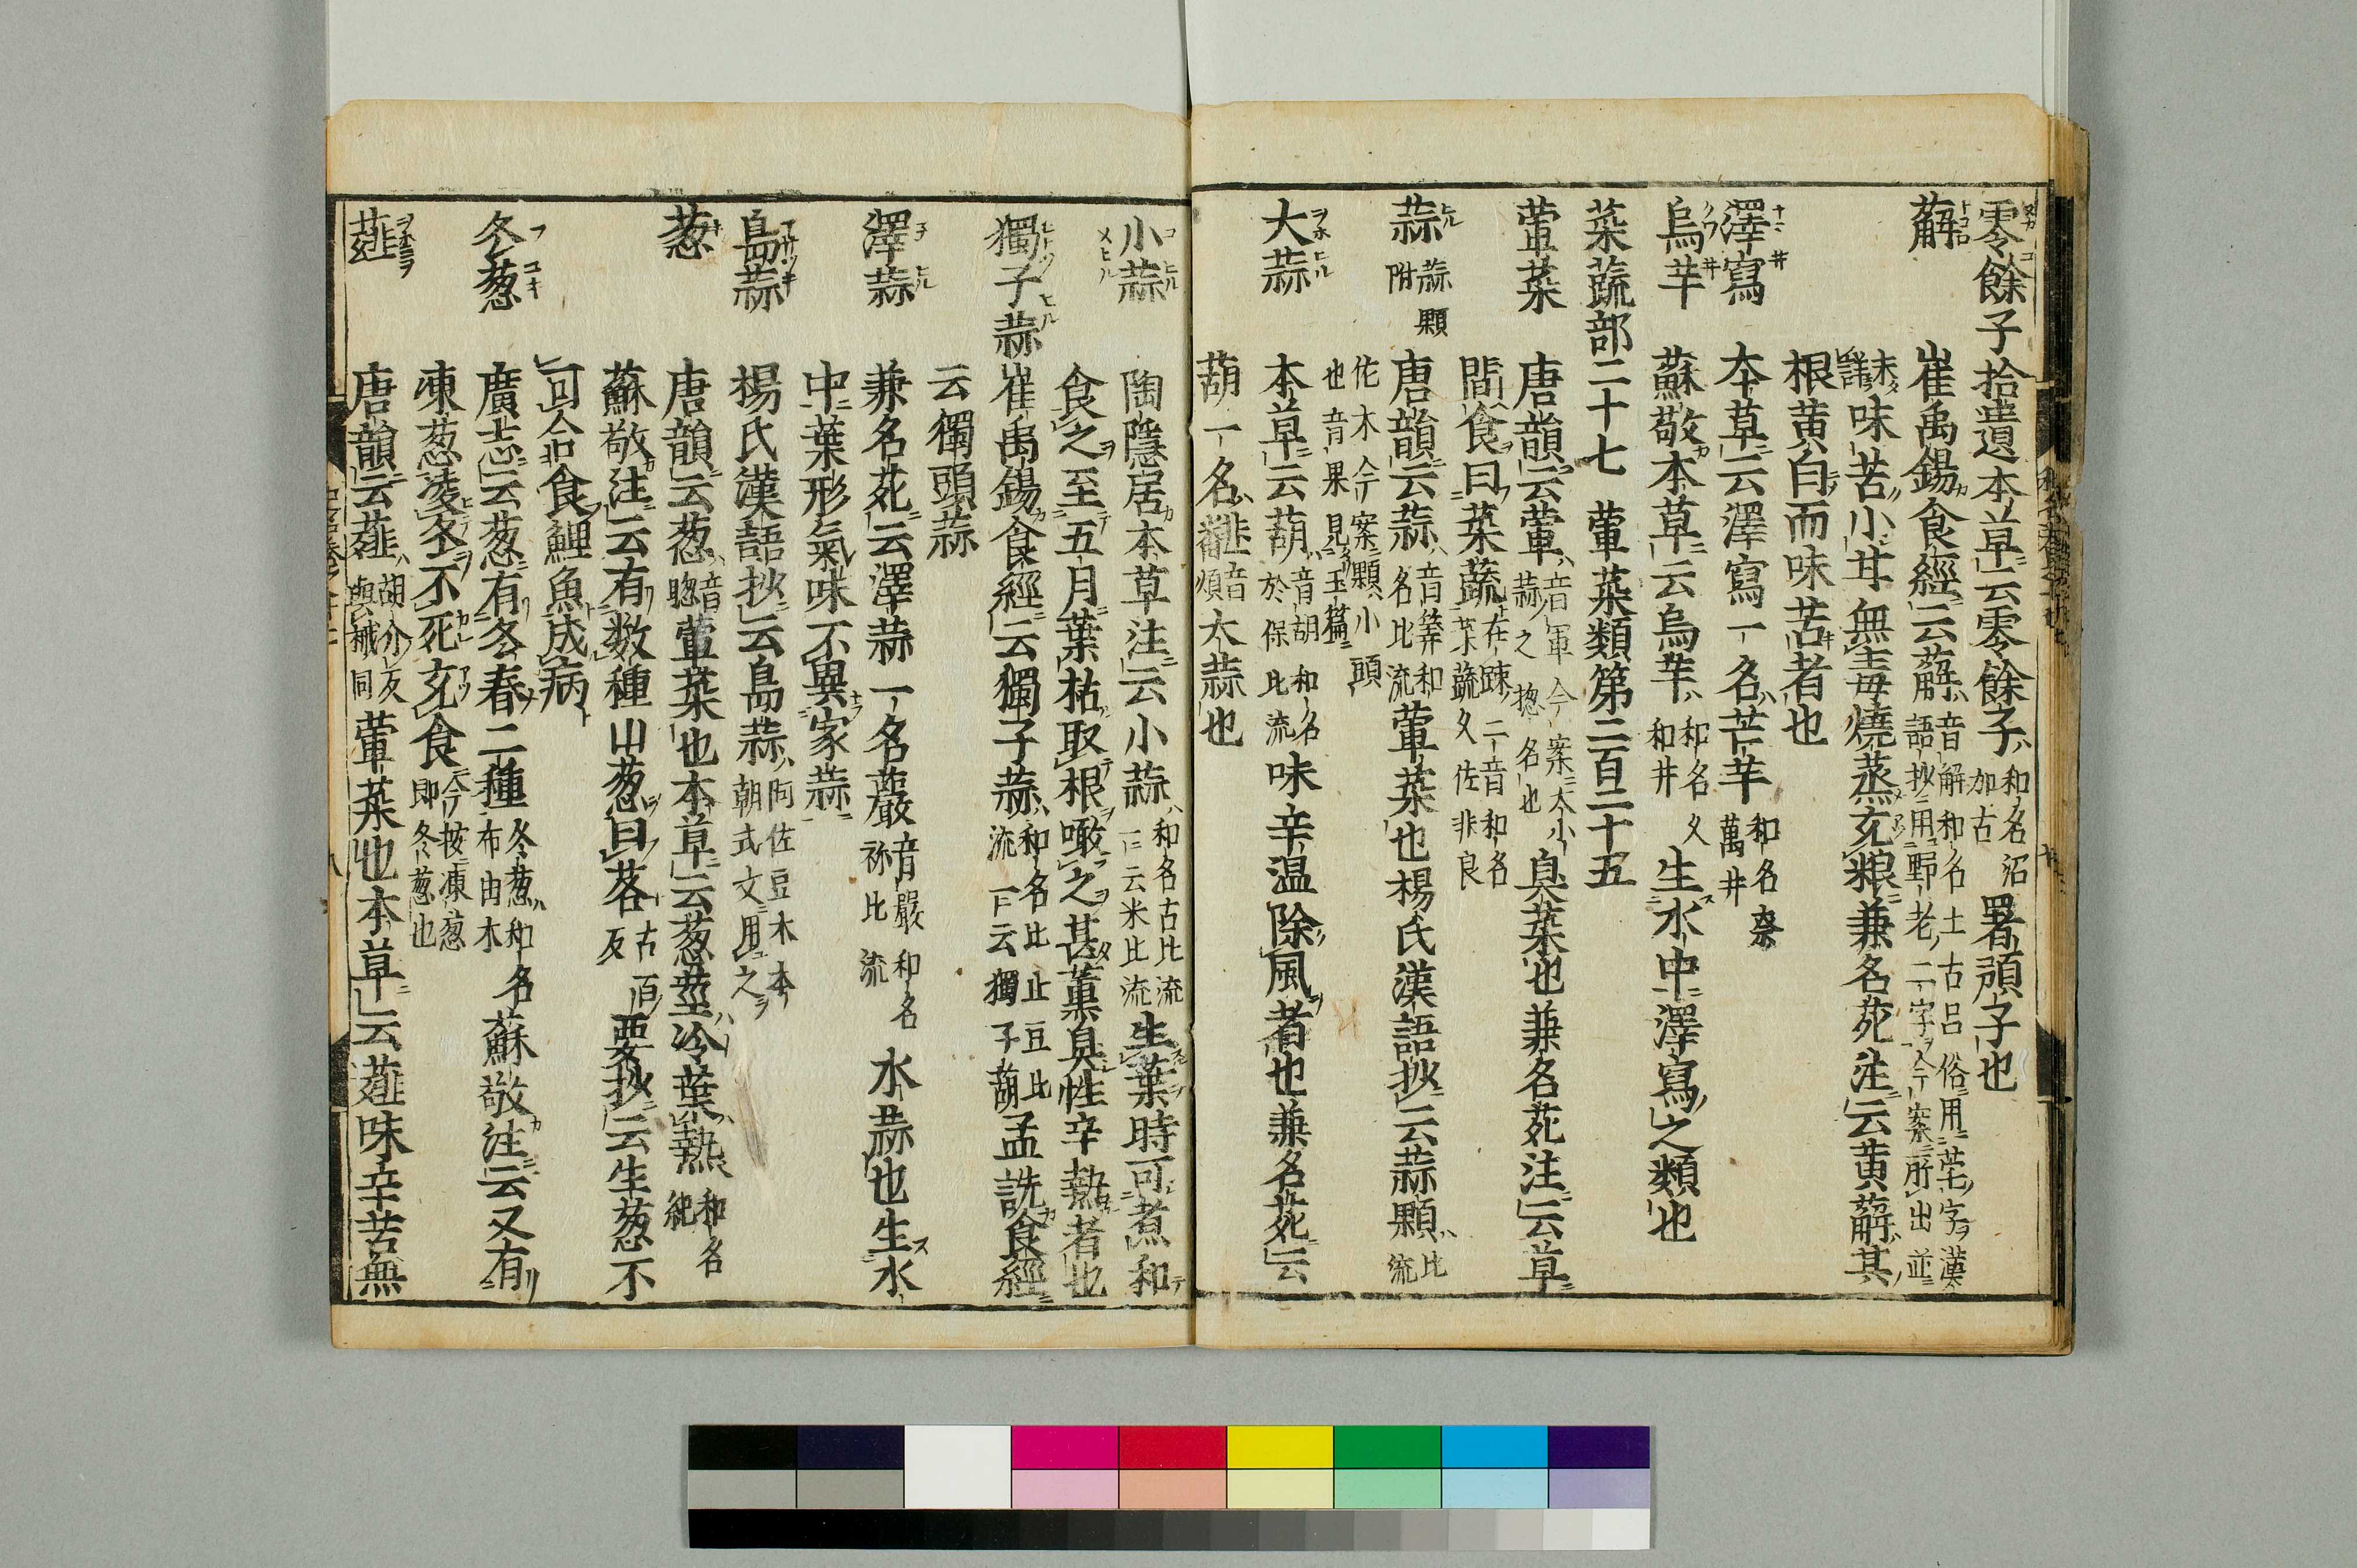 零餘子 拾遺本草云零餘子 和名沼加古 署預子也
薢 崔禹錫食經云薢 音解和名土古呂俗用𦬇字漢語抄用野老二字今案所出並
未詳 味苦小甘無毒燒蒸充粮兼名苑注云黄薢其
根黄白而味苦者也
澤寫 本草云澤寫一名芒芋 和名奈萬井
烏芋 蘇敬本草云烏芋 和名久和井 生水中澤寫之類也
菜蔬部二十七 葷菜類第二百二十五
葷菜 唐韻云葷 音軍今案大小蒜之惣名也 臭菜也兼名苑注云草
間食曰菜蔬 上在疎二音和名菜蔬久佐非良
蒜 蒜顆附 唐韻云蒜 音筭和名比流 葷菜也楊氏漢語抄云蒜顆 比流
佐木今案顆小頭也音果見玉篇
大蒜 本草云葫 音胡和名於保比流 味辛温除風者也兼名苑云
葫一名韮 音煩 大蒜也
小蒜 陶隱居本草注云小蒜 和名古比流一云米比流 生葉時可煮和
食之至五月葉枯取根噉之甚薫臭性辛熱者也
獨子蒜 崔禹錫食經云獨子蒜 和名比止豆比流一云獨子葫 孟詵食經
云獨頭蒜
澤蒜 兼名苑云澤蒜一名䕾 音嚴和名祢比流 水蒜也生水
中葉形氣味不異家蒜
島蒜 楊氏漢語抄云島蒜 阿佐豆木本朝式文用之
葱 唐韻云葱 音聡 葷菜也本草云葱莖冷葉熱 和名紀
蘇敬注云有数種山葱曰茖 古百反 要抄云生葱不
可合食鯉魚成病
冬葱 廣志云葱有冬春二種 冬葱和名布由木 蘇敬注云又有
凍葱凌冬不死充食 今按凍葱即冬葱也
薤 唐韻云薤 胡介反與械同 葷菜也本草云薤味辛苦無